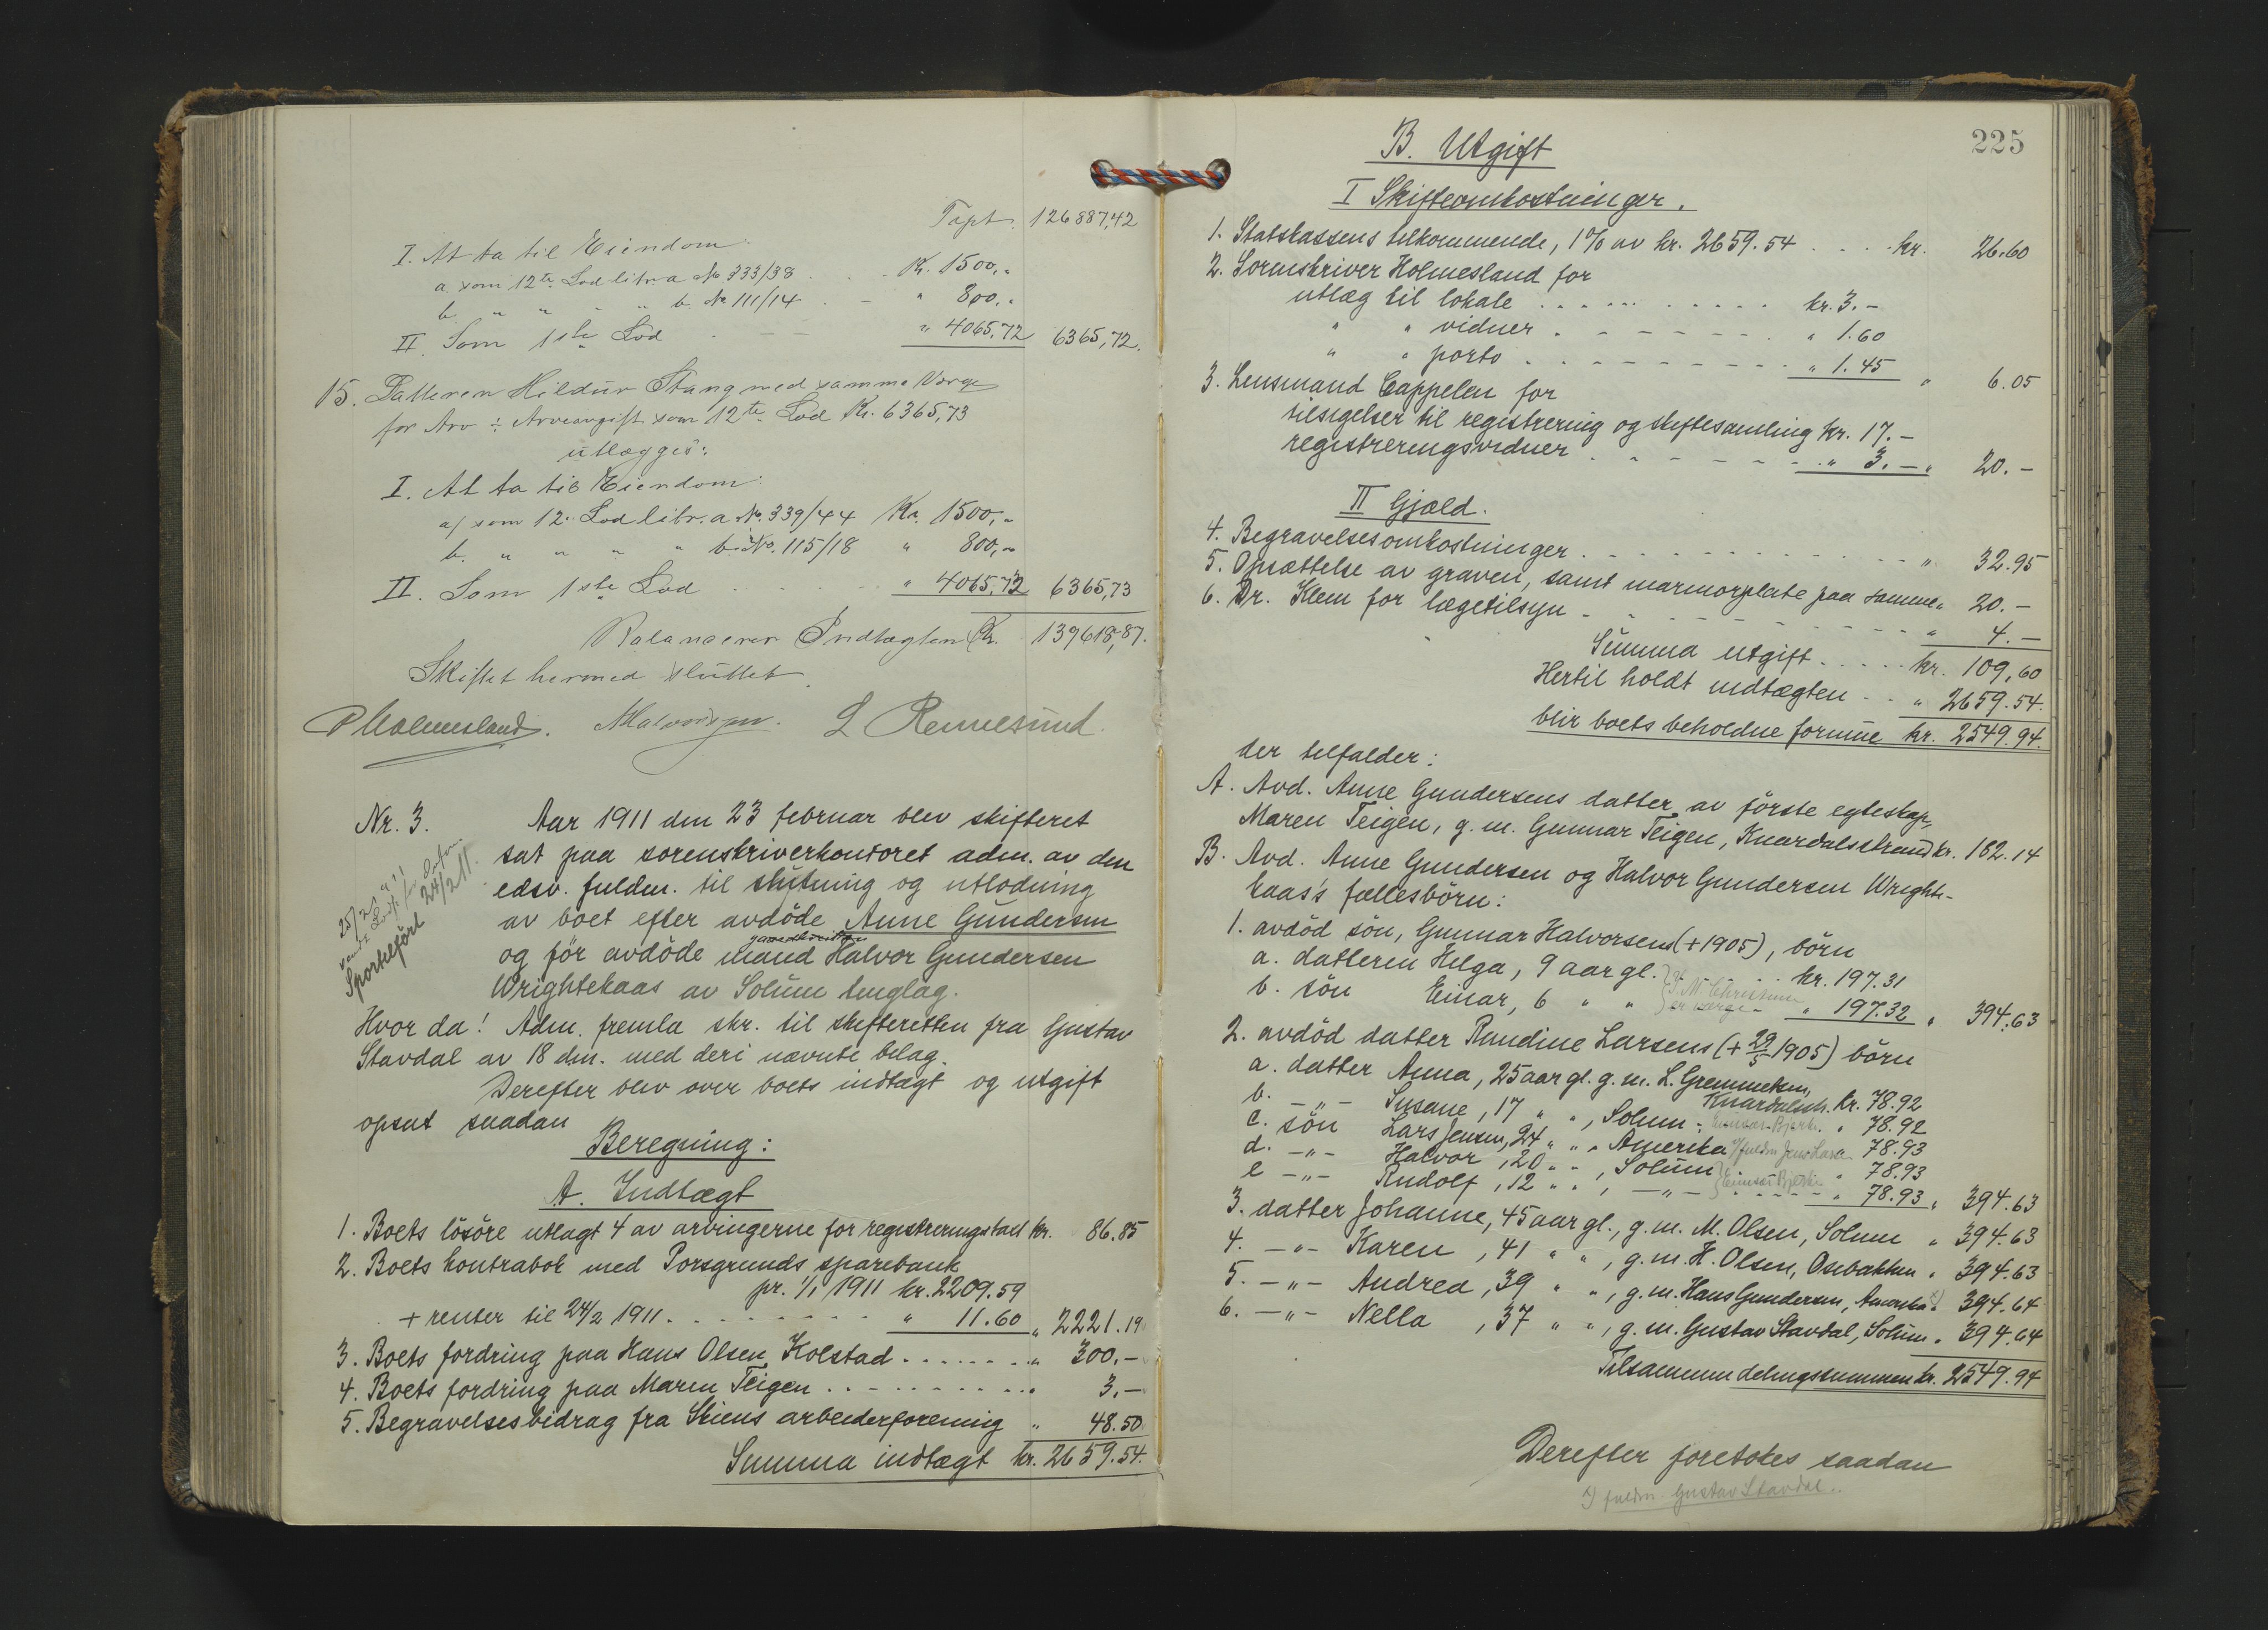 Tspt. 126887,42
I. At ta til Eiendom:
a. som 12te Lod litra a No 333/38 . . . Kr. 1500,"
b. " " " " b. No 111/14 . - " 800,"
II. Som 1ste Lod . — — " 4065,72 6365,72.
15. Datteren Hildur Stang med samme Verge
for Arv ÷ Arveavgift som 12te Lod Kr. 6365,73
utlægges:
I. At ta til Eiendom:
a/ som 12. Lod litr. a No. 339/44 Kr. 1500,"
b. " " " " b. No. 115/18 " 800,"
II. Som 1ste Lod . . . . " 4065,73 6365,73
Balancerer Indtægten Kr. 139618,87.
Skiftet hermed sluttet.
P Holmesland. MHalvorsen. L Rennesund.
Nr. 3. Aar 1911 den 23 februar blev skifteret
sat paa sorenskriverkontoret adm. av den
edsv. fuldm. til slutning og utlodning
av boet efter avdöde Anne Gundersen
og för avdöde mand Halvor Gundersen
Wrightekaas av Solum tinglag.
25/2 1911
Sportelfört 24/2 11.
Hvor da! Adm. fremla skr. til skifteretten fra Gustav
Stavdal av 18 dm. med deri nævnte bilag.
Derefter blev over boets indtægt og utgift
opsat saadan
Beregning:
A. Indtægt
1. Boets lösöre utlagt 4 av arvingerne for registreringstakst kr. 86.85
2. Boets kontrabok med Porsgrunds sparebank
pr. 1/1 1911 kr. 2209.59
+ renter til 24/2 1911. . . . . . . . " 11.60 " 2221.19
3. Boets fordring paa Hans Olsen Kolstad . . . . . . . " 300.-
4. Boets fordring paa Maren Teigen . . . . . . . . . . . 3.-
5. Begravelsesbidrag fra Skiens arbeiderforening " 48.50
Summa indtægt kr. 2659.54.
225
B. Utgift
I Skifteomkostninger.
1. Statskassens tilkommende, 1% av kr. 2659.54 . . . . kr. 26.60
2. Sorenskriver Holmesland for
utlæg til lokale . . . . . . . . . . kr. 3.-
" " vidner . . . . . . . . " 1.60
" " porto . . . . . . . . . . " 1.45 " 6.05
3. Lensmand Cappelen for
tilsigelser til registrering og skiftesamling kr. 17.-
registreringsvidner . . . . . . . " 3.- " 20.-
II Gjæld.
4. Begravelsesomkostninger . . . . . . . . . . . . . " 32.95
5. Opsættelse av graven, samt marmorplate paa samme " 20.-
6. Dr. Klem for lægetilsyn . . . . . . . . . . . " 4.-
Summa utgift . . . . . kr. 109,60
Hertil holdt indtægten . . " 2659.54.
blir boets beholdne formue kr. 2549.94.
der tilfalder:
A. Avd. Anne Gundersens datter av förste egteskap,
Maren Teigen, g. m. Gunnar Teigen, Knardalsstrand kr. 182.14
B. Avd. Anne Gundersen og Halvor Gundersen Wright-
kaas's fællesbörn:
1. avdöd sön, Gunnar Halvorsens (+1905), börn
a. datteren Helga, 9 aar gl. . . . . . kr. 197.31
b. sön Einar, 6 " " N. Christensen er verge " 197.32 " 394.63
2. avdöd datter Randine Larsens (+ 29/5 1905) börn
a. datter Anna, 25 aar gl. g. m. L. Gremmeksen,
Knardalsstr. kr. 78.92
b. -"- Susane, 17 " " , Solum . " 78.92
c. sön Lars Jensen, 24 " " . Amerika " 78.93
d. -"- Halvor, 20 " " , Solum " 78.93
e -"- Rudolf, 12 " " , -"- . . . . . . " 78.93 " 394.63
3. datter Johanne, 45 aar gl., g. m. M. Olsen, Solum " 394.63
4. -"- Karen, 41 " " , g. m. H. Olsen, Osebakken " 394.63
5. -"- Andrea, 39 " " , g. m. Hans Gundersen, Amerika x) " 394.64
6. -"- Nella, 37 " " , g. m. Gustav Stavdal, Solum " 394.64
Tilsammen delingssummen kr. 2549.94
Derefter foretokes saadan
x) fuldm. Gustav Stavdal.